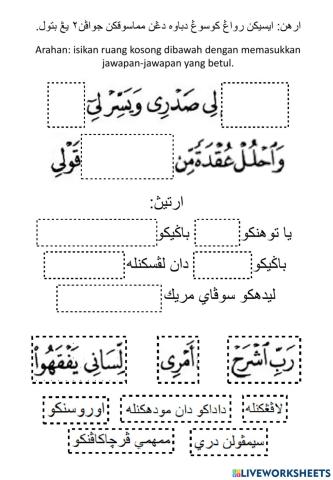 ارهن: ايسيكن رواڠ كوسوڠ دباوه دڠن مماسوقكن جواڤن٢ يڠ بتول.
Arahan: isikan ruang kosong dibawah dengan memasukkan
jawapan-jawapan yang betul.
لِي صَدْرِى وَيَسِّرْ لِىٓ
وَٱحْلُلْ عُقْدَةً مِّن قَوْلِي
ارتيڽ:
يا توهنكو باڬيكو
باڬيكو دان لڤسكنله
ليدهكو سوڤاي مريك
رَبِّ ٱشْرَحْ أَمْرِى لِّسَانِى يَفْقَهُوا۟
لاڤڠكنله داداكو دان مودهكنله اوروسنكو
سيمڤولن دري ممهمي ڤرچاكاڤنكو
LIVEWORKSHEETS